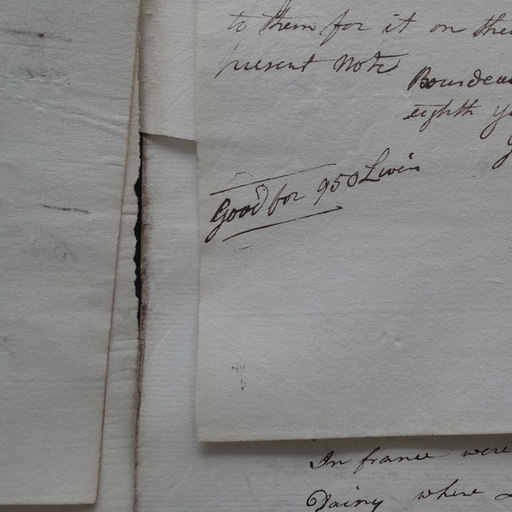 to them for it on the
present Note
Bourdeau
eighth y
Good for 950 Livres
In france were
where